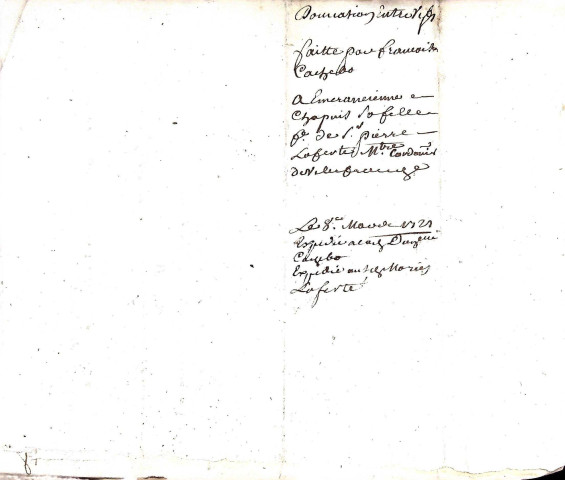 Donnation Entre Vifs
faitte par francoise
Cachebo
A Emerancienne
Chapuis sa fille
fe. de Sr. pierre
Laferté Mtre Cordonr
de Villefranche
Le 8e. Mars 1721
Expedié a
Cachebo
Expedié aus. Mariés
Laferté